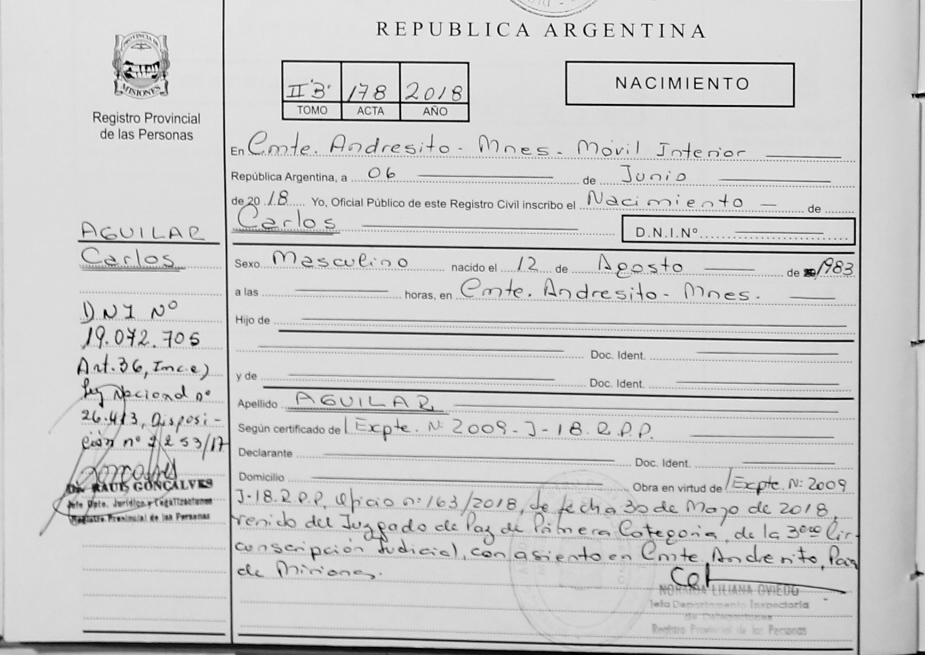 REPUBLICA ARGENTINA
PROVINCIA DE
MISIONES
Registro Provincial
de las Personas
II "B" 178 2018
TOMO ACTA AÑO
NACIMIENTO
En Cmte. Andresito - Mnes - Móvil Interior
República Argentina, a 06 de Junio
de 2018 Yo, Oficial Público de este Registro Civil inscribo el Nacimiento de
Carlos
D.N.I.Nº
Sexo Masculino nacido el 12 de Agosto de 1983
a las horas, en Cmte. Andresito - Mnes.
Hijo de
Doc. Ident.
y de Doc. Ident.
Apellido AGUILAR
Según certificado de Expte. Nº 2009-J-18.R.P.P.
Declarante Doc. Ident.
Domicilio Obra en virtud de Expte. Nº 2009
J-18.R.P.P, Oficio nº 163/2018, de fecha 30 de Mayo de 2018,
venido del Juzgado de Paz de Primera Categoria, de la 3era Cir-
conscripción Judicial, con asiento en Cmte. Andresito,
de Misiones.
NORMA LILIANA OVIEDO
Jefa Departamento Inspectoria
de Delegaciones
Registro Provincial de las Personas
AGUILAR
Carlos
DNI Nº
19.072.705
Art. 36, Inc. e)
Ley Nacional nº
26.413, Disposi-
ción nº 2253/17
Dr. RAUL GONCALVES
Jefe Dpto. Jurídico y Legalizaciones
Registro Provincial de las Personas